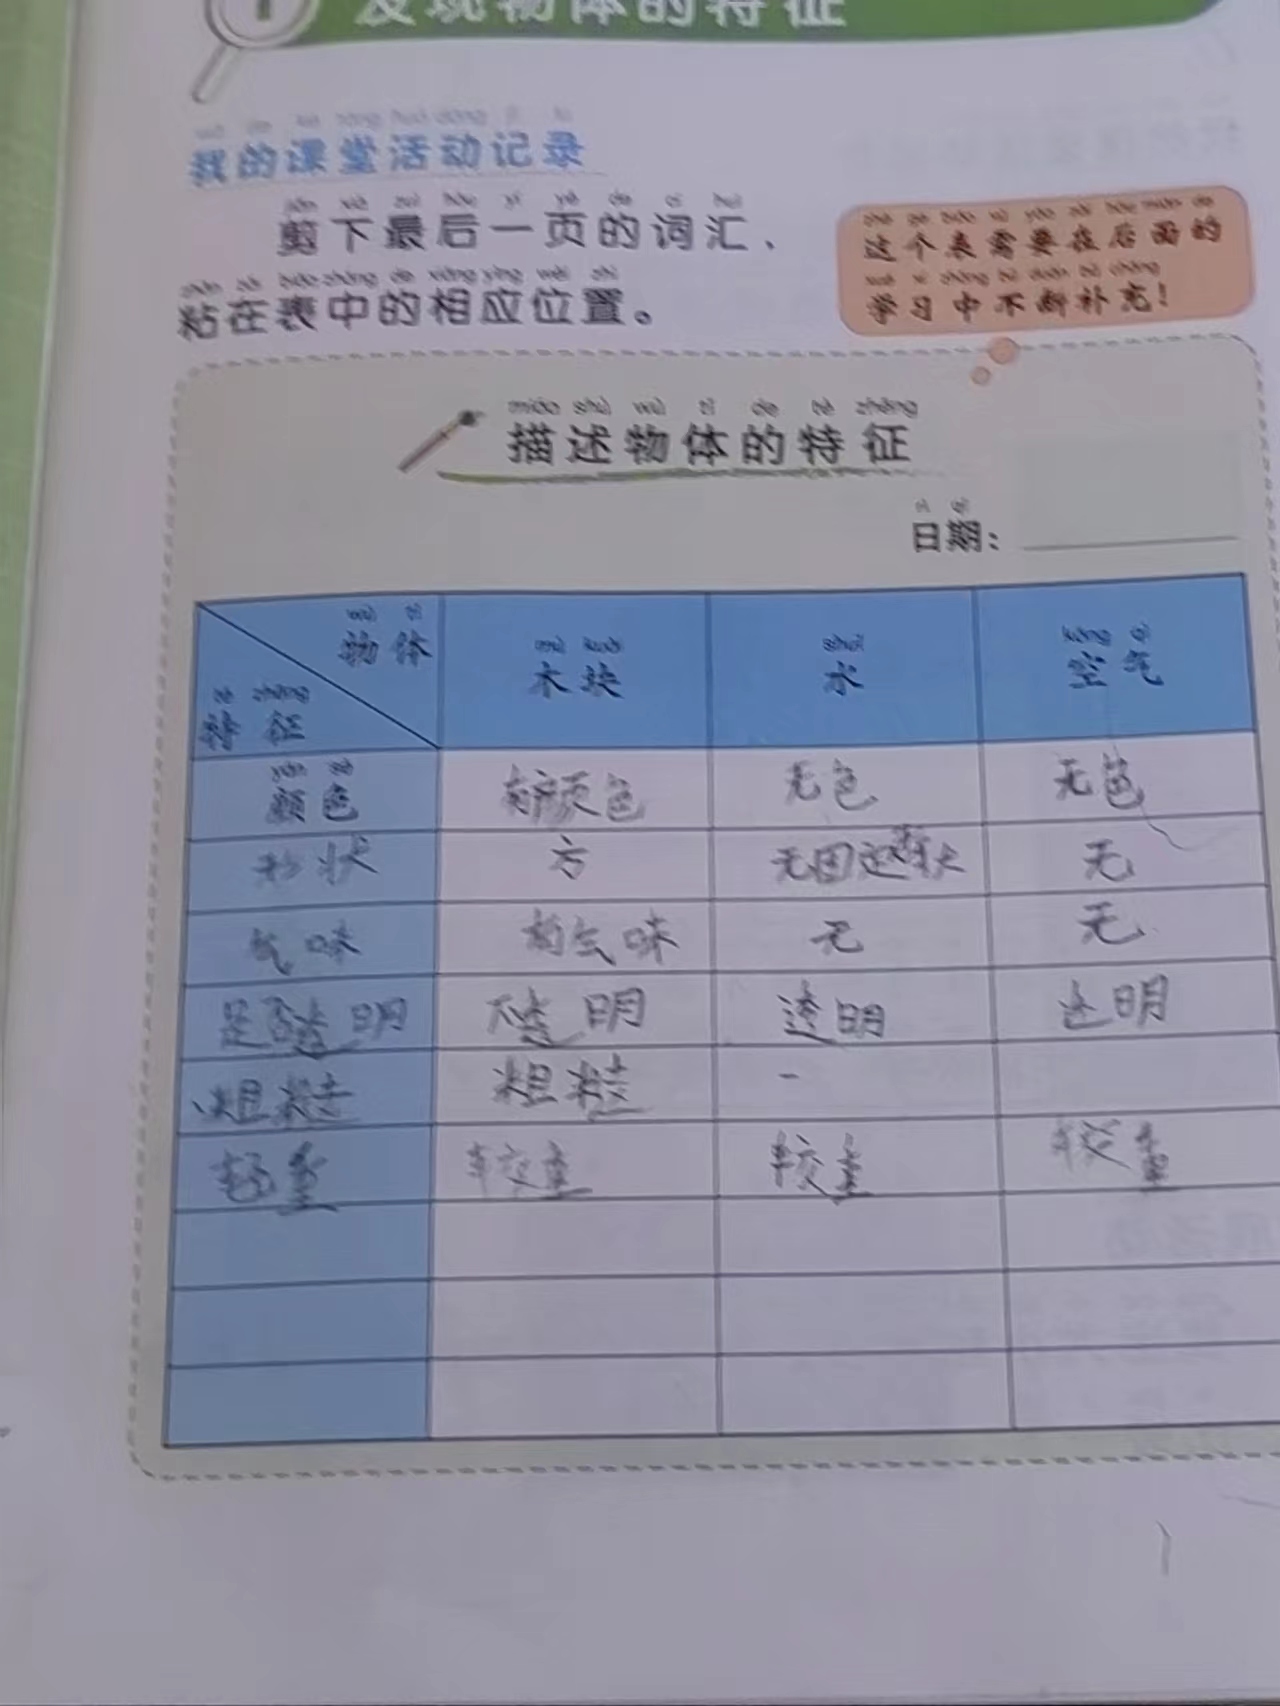 发现物体的特征
我的课堂活动记录
jiǎn xià zuì hòu yí yè de cí huì
剪下最后一页的词汇，
zhān zài biǎo zhōng de xiāng yìng wèi zhì
粘在表中的相应位置。
zhè ge biǎo xū yào zài hòu miàn de
这个表需要在后面的
xué xí zhōng bú duàn bǔ chōng
学习中不断补充！
miáo shù wù tǐ de tè zhēng
描述物体的特征
rì qī
日期：
wù tǐ
物体
mù kuài
木块
shuǐ
水
kōng qì
空气
tè zhēng
特征
yán sè
颜色 有颜色 无色 无色
形状 方 无固 无
气味 有气味 无 无
是否透明 不透明 透明 透明
粗糙 粗糙 -
轻重 较重 较重 较重